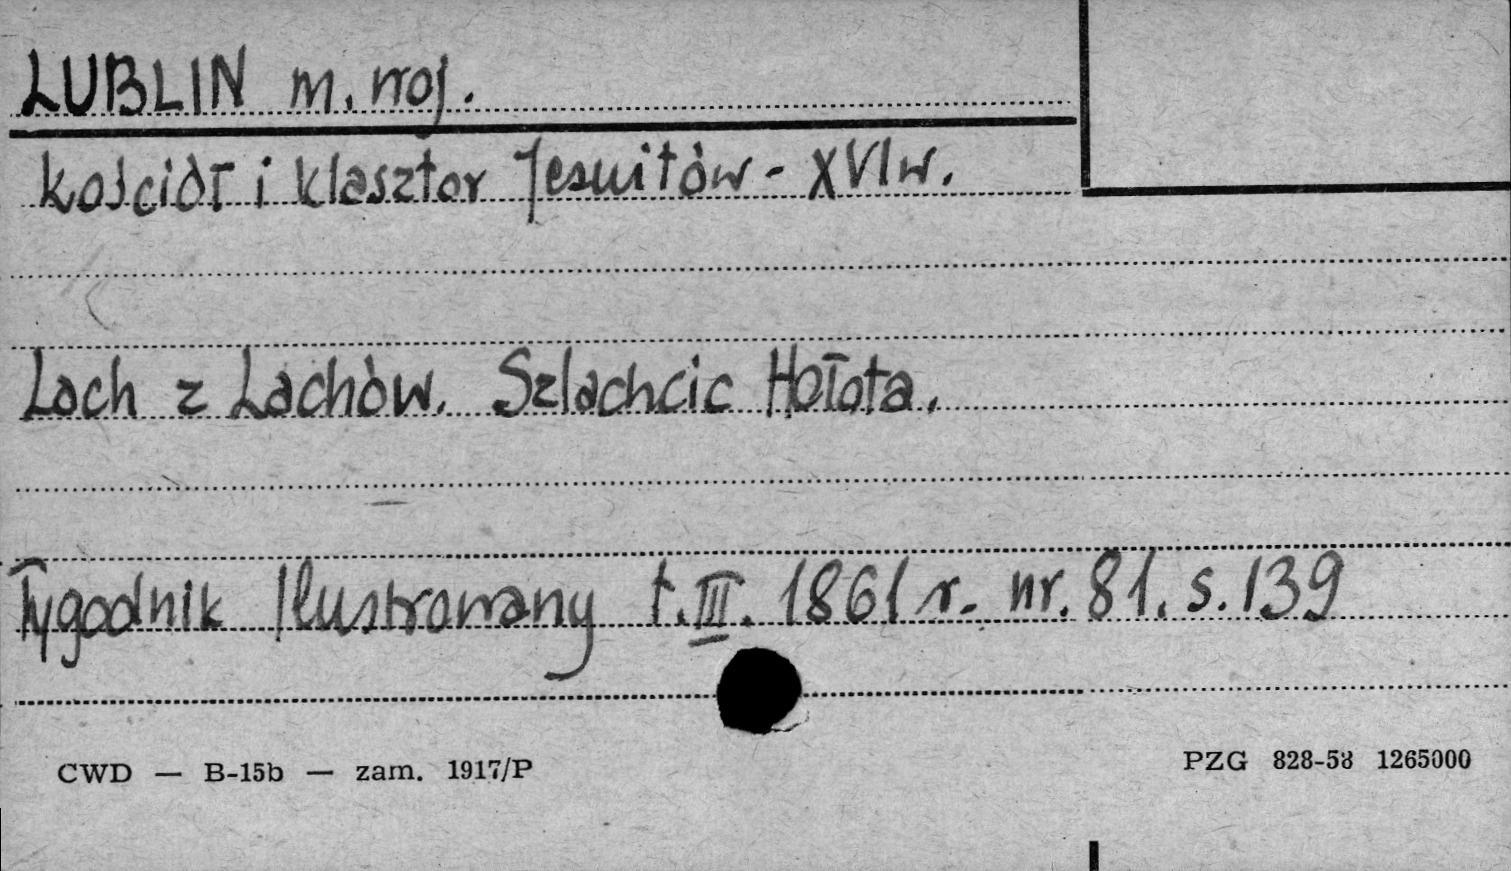 LUBLIN m. woj.
Kościół i klasztor Jesuitów - XVI w.
Lach z Lachów. Szlachcic Hołota.
Tygodnik Ilustrowany t. III. 1861 r. nr. 81. s. 139
CWD — B-15b — zam. 1917/P
PZG 828-58 1265000